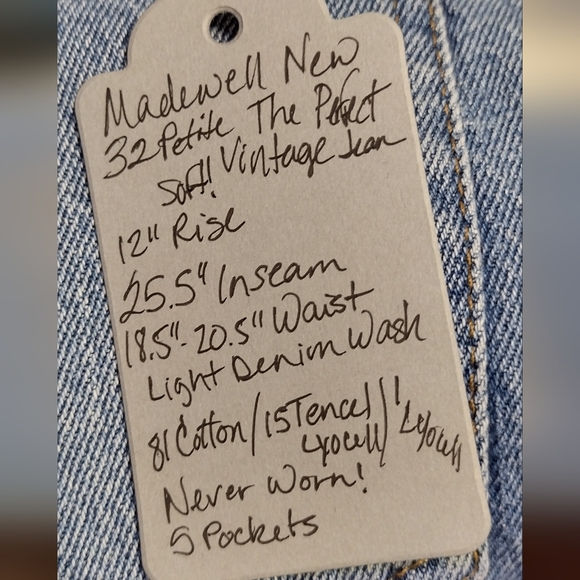 Madewell New
32 Petite The Perfect
Soft! Vintage Jean
12" Rise
25.5" Inseam
18.5"-20.5" Waist
Light Denim Wash
81 Cotton/15Tencel/
Lyocell/
Never Worn!
5 Pockets